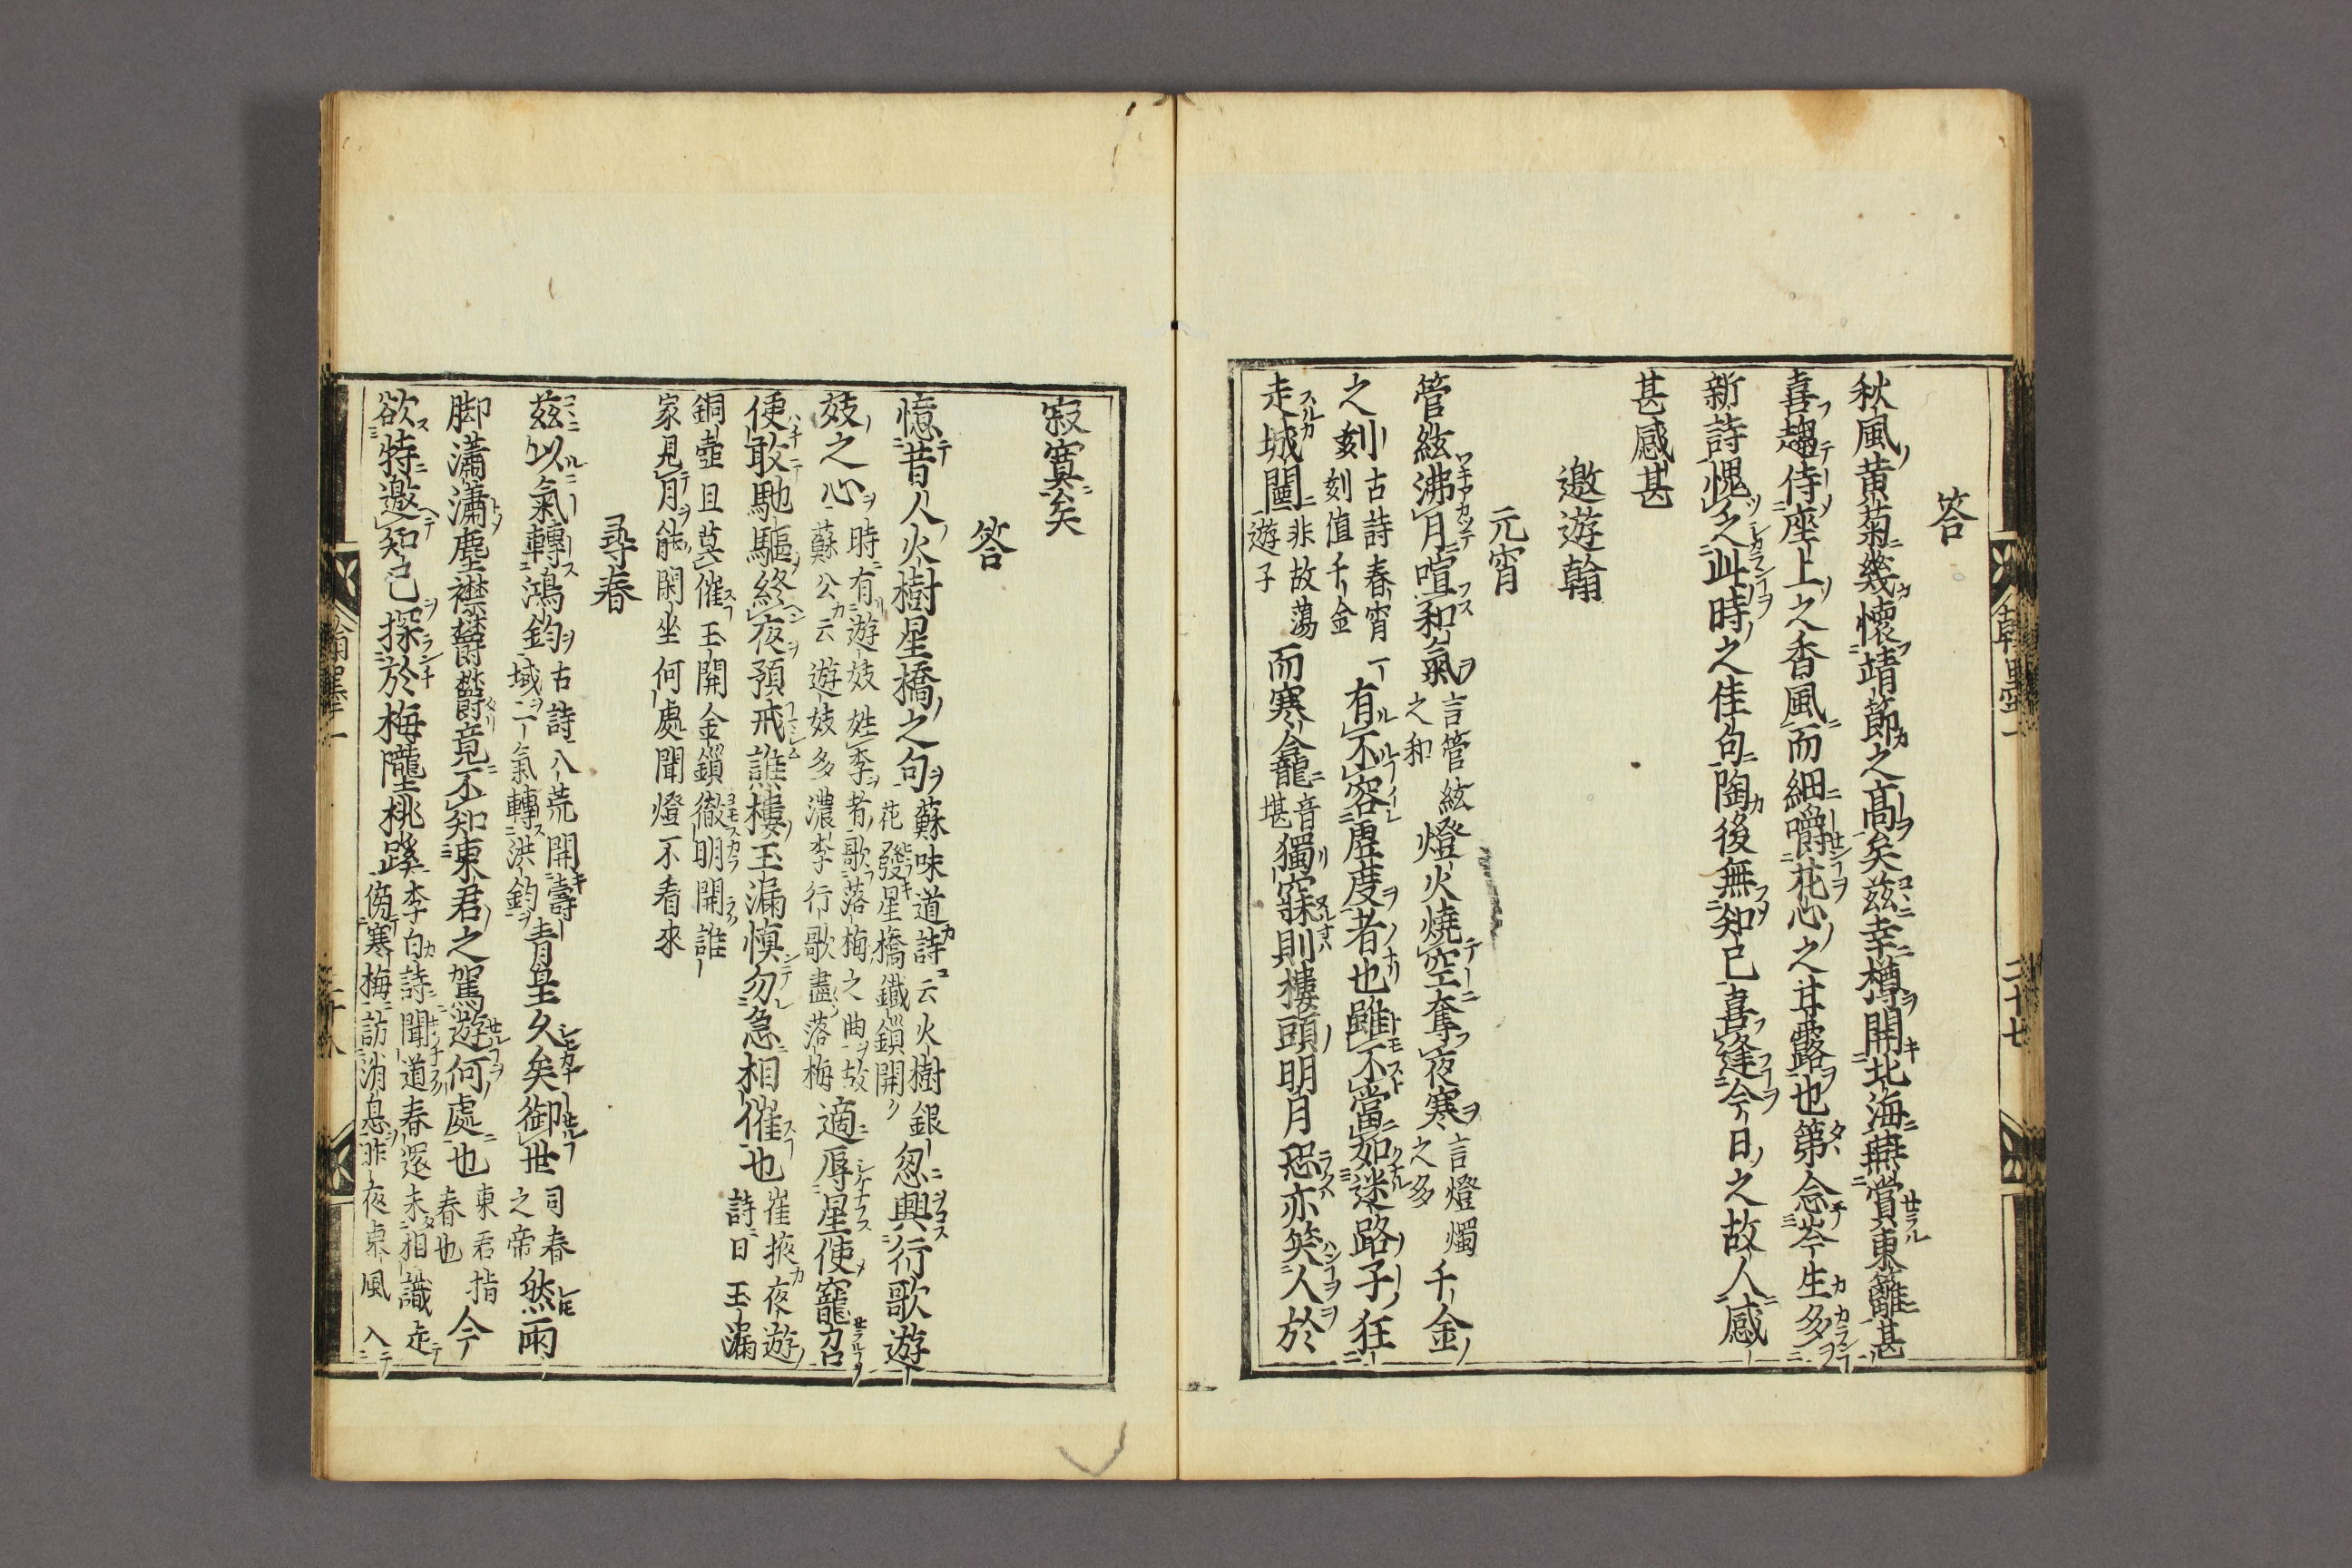 答
秋風黄菊幾懷靖節之高矣茲幸樽開北海燕賞東籬甚
喜趨侍座上之香風而細嚼花心之甘露也第念岑生多
新詩愧乏此時之佳句陶後無知已喜逢今日之故人感
甚感甚
邀遊翰
元宵
管絃沸月喧和氣
言管絃
之和
燈火燒空奪夜寒
言燈燭
之多
千金
之刻
古詩春宵一
刻值千金
有不容虛度者也雖不當如迷路子狂
走城闉
非故蕩
遊子
而寒龕
音
堪
獨寐則樓頭明月恐亦笑人於
寂寞矣
答
憶昔人火樹星橋之句
蘇味道詩云火樹銀
花發星橋鐵鎖開
忽興行歌遊
妓之心
時有遊妓姓李者歌落梅之曲故
蘇公云遊妓多濃李行歌盡落梅
適辱星使寵召
便敢馳驅終夜預戒譙樓玉漏慎勿急相催也
崔掖夜遊
詩曰玉漏
銅壺且莫催玉開金鎖徹明開誰
家見月能閑坐何處聞燈不看來
尋春
茲以氣轉鴻鈞
古詩八荒開壽
域二氣轉洪鈞
青皇久矣御世
司春
之帝
然兩
脚瀟瀟塵襟欝欝竟不知東君之駕遊何處也
東君指
春也
今
欲特邀知己探於梅隴桃蹊
李白詩聞道春還未相識走
傍寒梅訪消息昨夜東風入
翰墨一
二十七
翰墨一
二十八